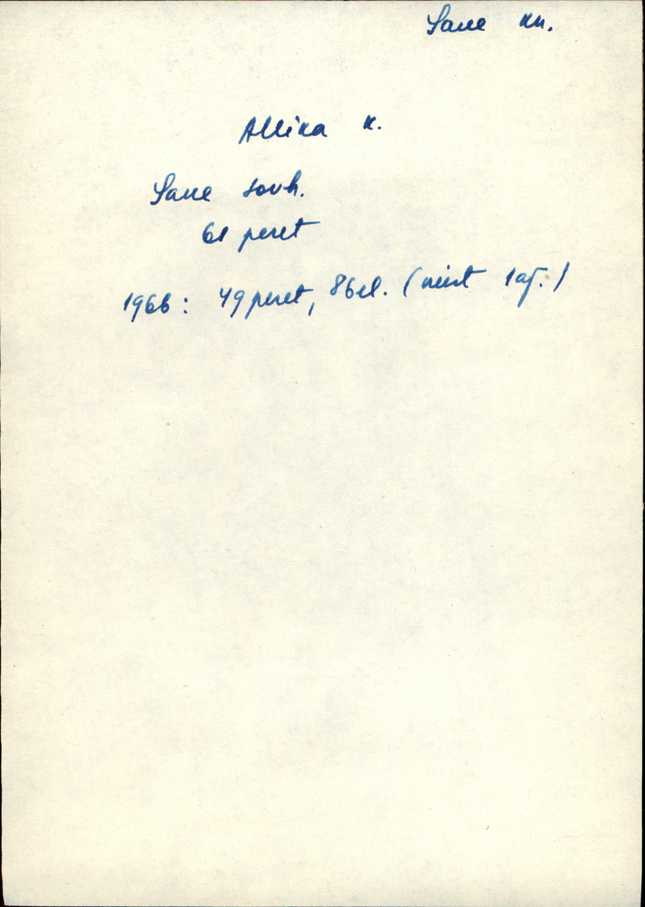 Saue kn.
Allika k.
Saue sovh.
61 peret
1966: 49 peret, 86 el. (neist 1 aj.)